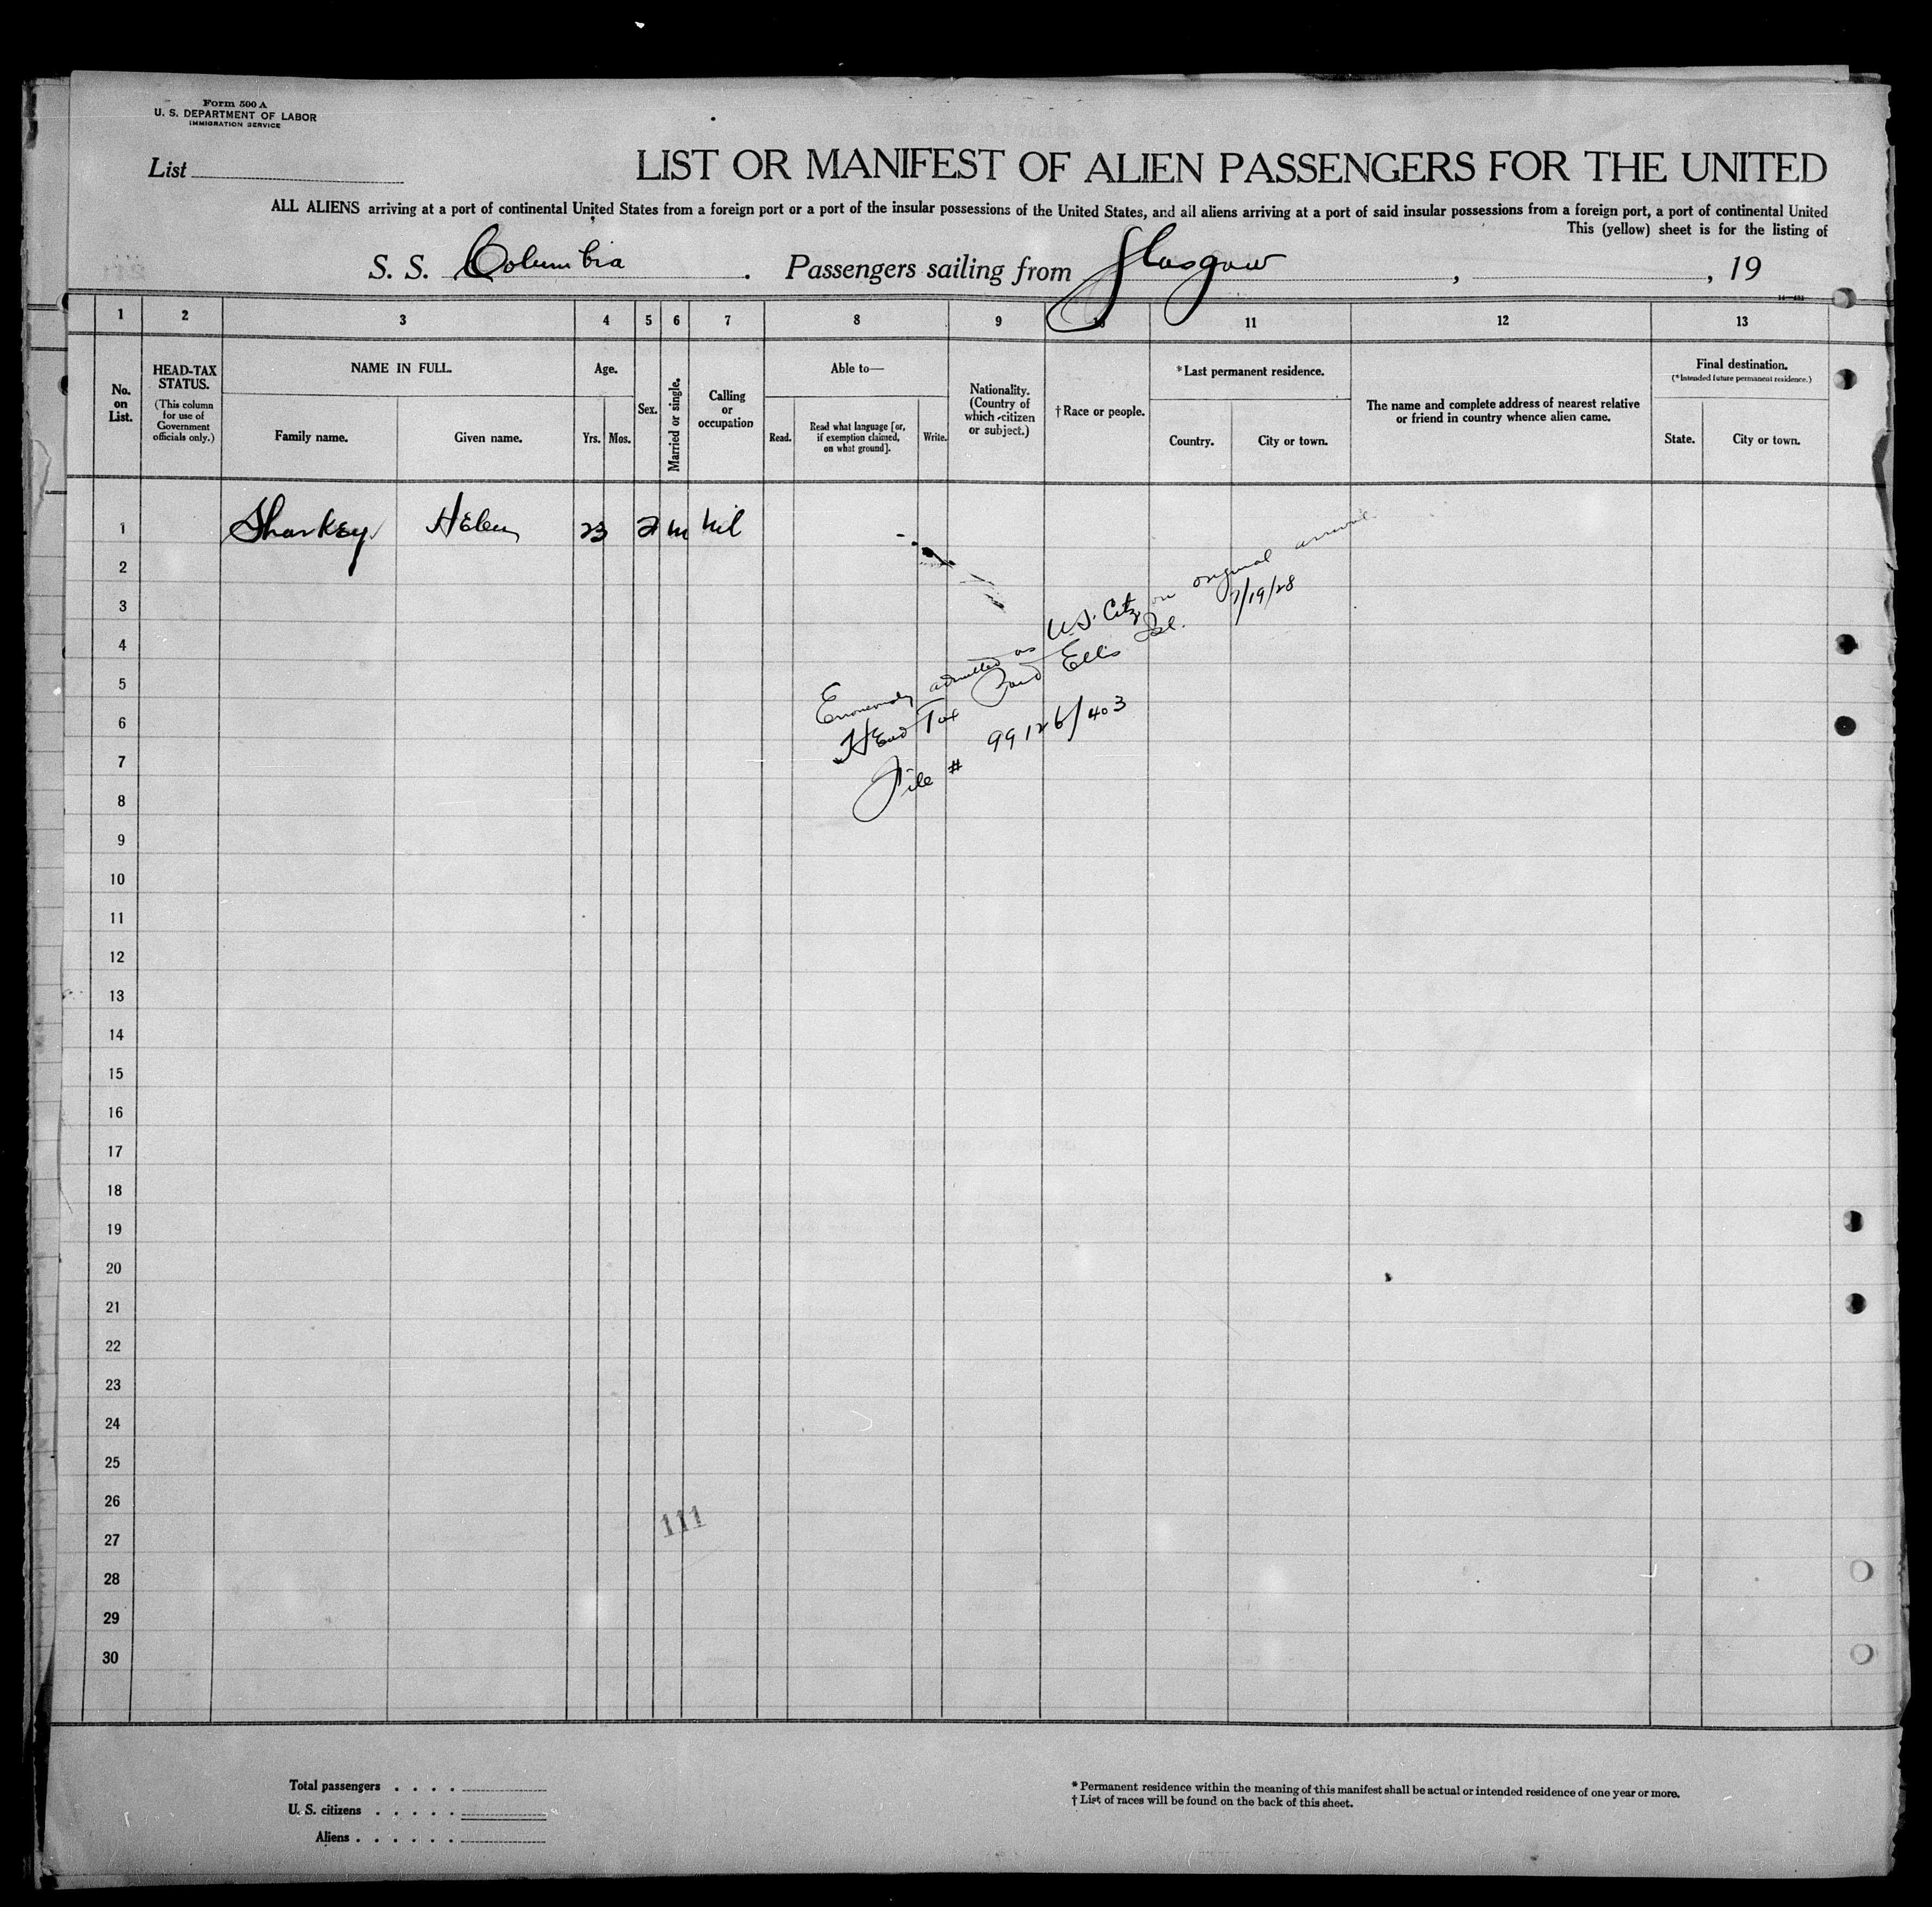 Form 500 A
U. S. DEPARTMENT OF LABOR
IMMIGRATION SERVICE
List
LIST OR MANIFEST OF ALIEN PASSENGERS FOR THE UNITED
ALL ALIENS arriving at a port of continental United States from a foreign port or a port of the insular possessions of the United States, and all aliens arriving at a port of said insular possessions from a foreign port, a port of continental United
This (yellow) sheet is for the listing of
S. S. Columbia . Passengers sailing from Glasgow , , 19
1 2 3 4 5 6 7 8 9 10 11 12 13
No. on List.
HEAD-TAX STATUS.
(This column for use of Government officials only.)
NAME IN FULL.
Family name.
Given name.
Age.
Yrs. Mos.
Sex.
Married or single.
Calling or occupation
Able to—
Read.
Read what language [or, if exemption claimed, on what ground].
Write.
Nationality. (Country of which citizen or subject.)
†Race or people.
*Last permanent residence.
Country.
City or town.
The name and complete address of nearest relative or friend in country whence alien came.
Final destination.
(*Intended future permanent residence.)
State.
City or town.
1 Sharkey Helen 23 F m nil
2
3
4
5
6
7
8
9
10
11
12
13
14
15
16
17
18
19
20
21
22
23
24
25
26
27
28
29
30
Erroneously admitted as U.S. Citz on original arrival
Head Tax Paid Ellis Isl. 7/19/28
File # 99126/403
111
Total passengers . . . .
U. S. citizens . . . . .
Aliens . . . . . .
* Permanent residence within the meaning of this manifest shall be actual or intended residence of one year or more.
† List of races will be found on the back of this sheet.